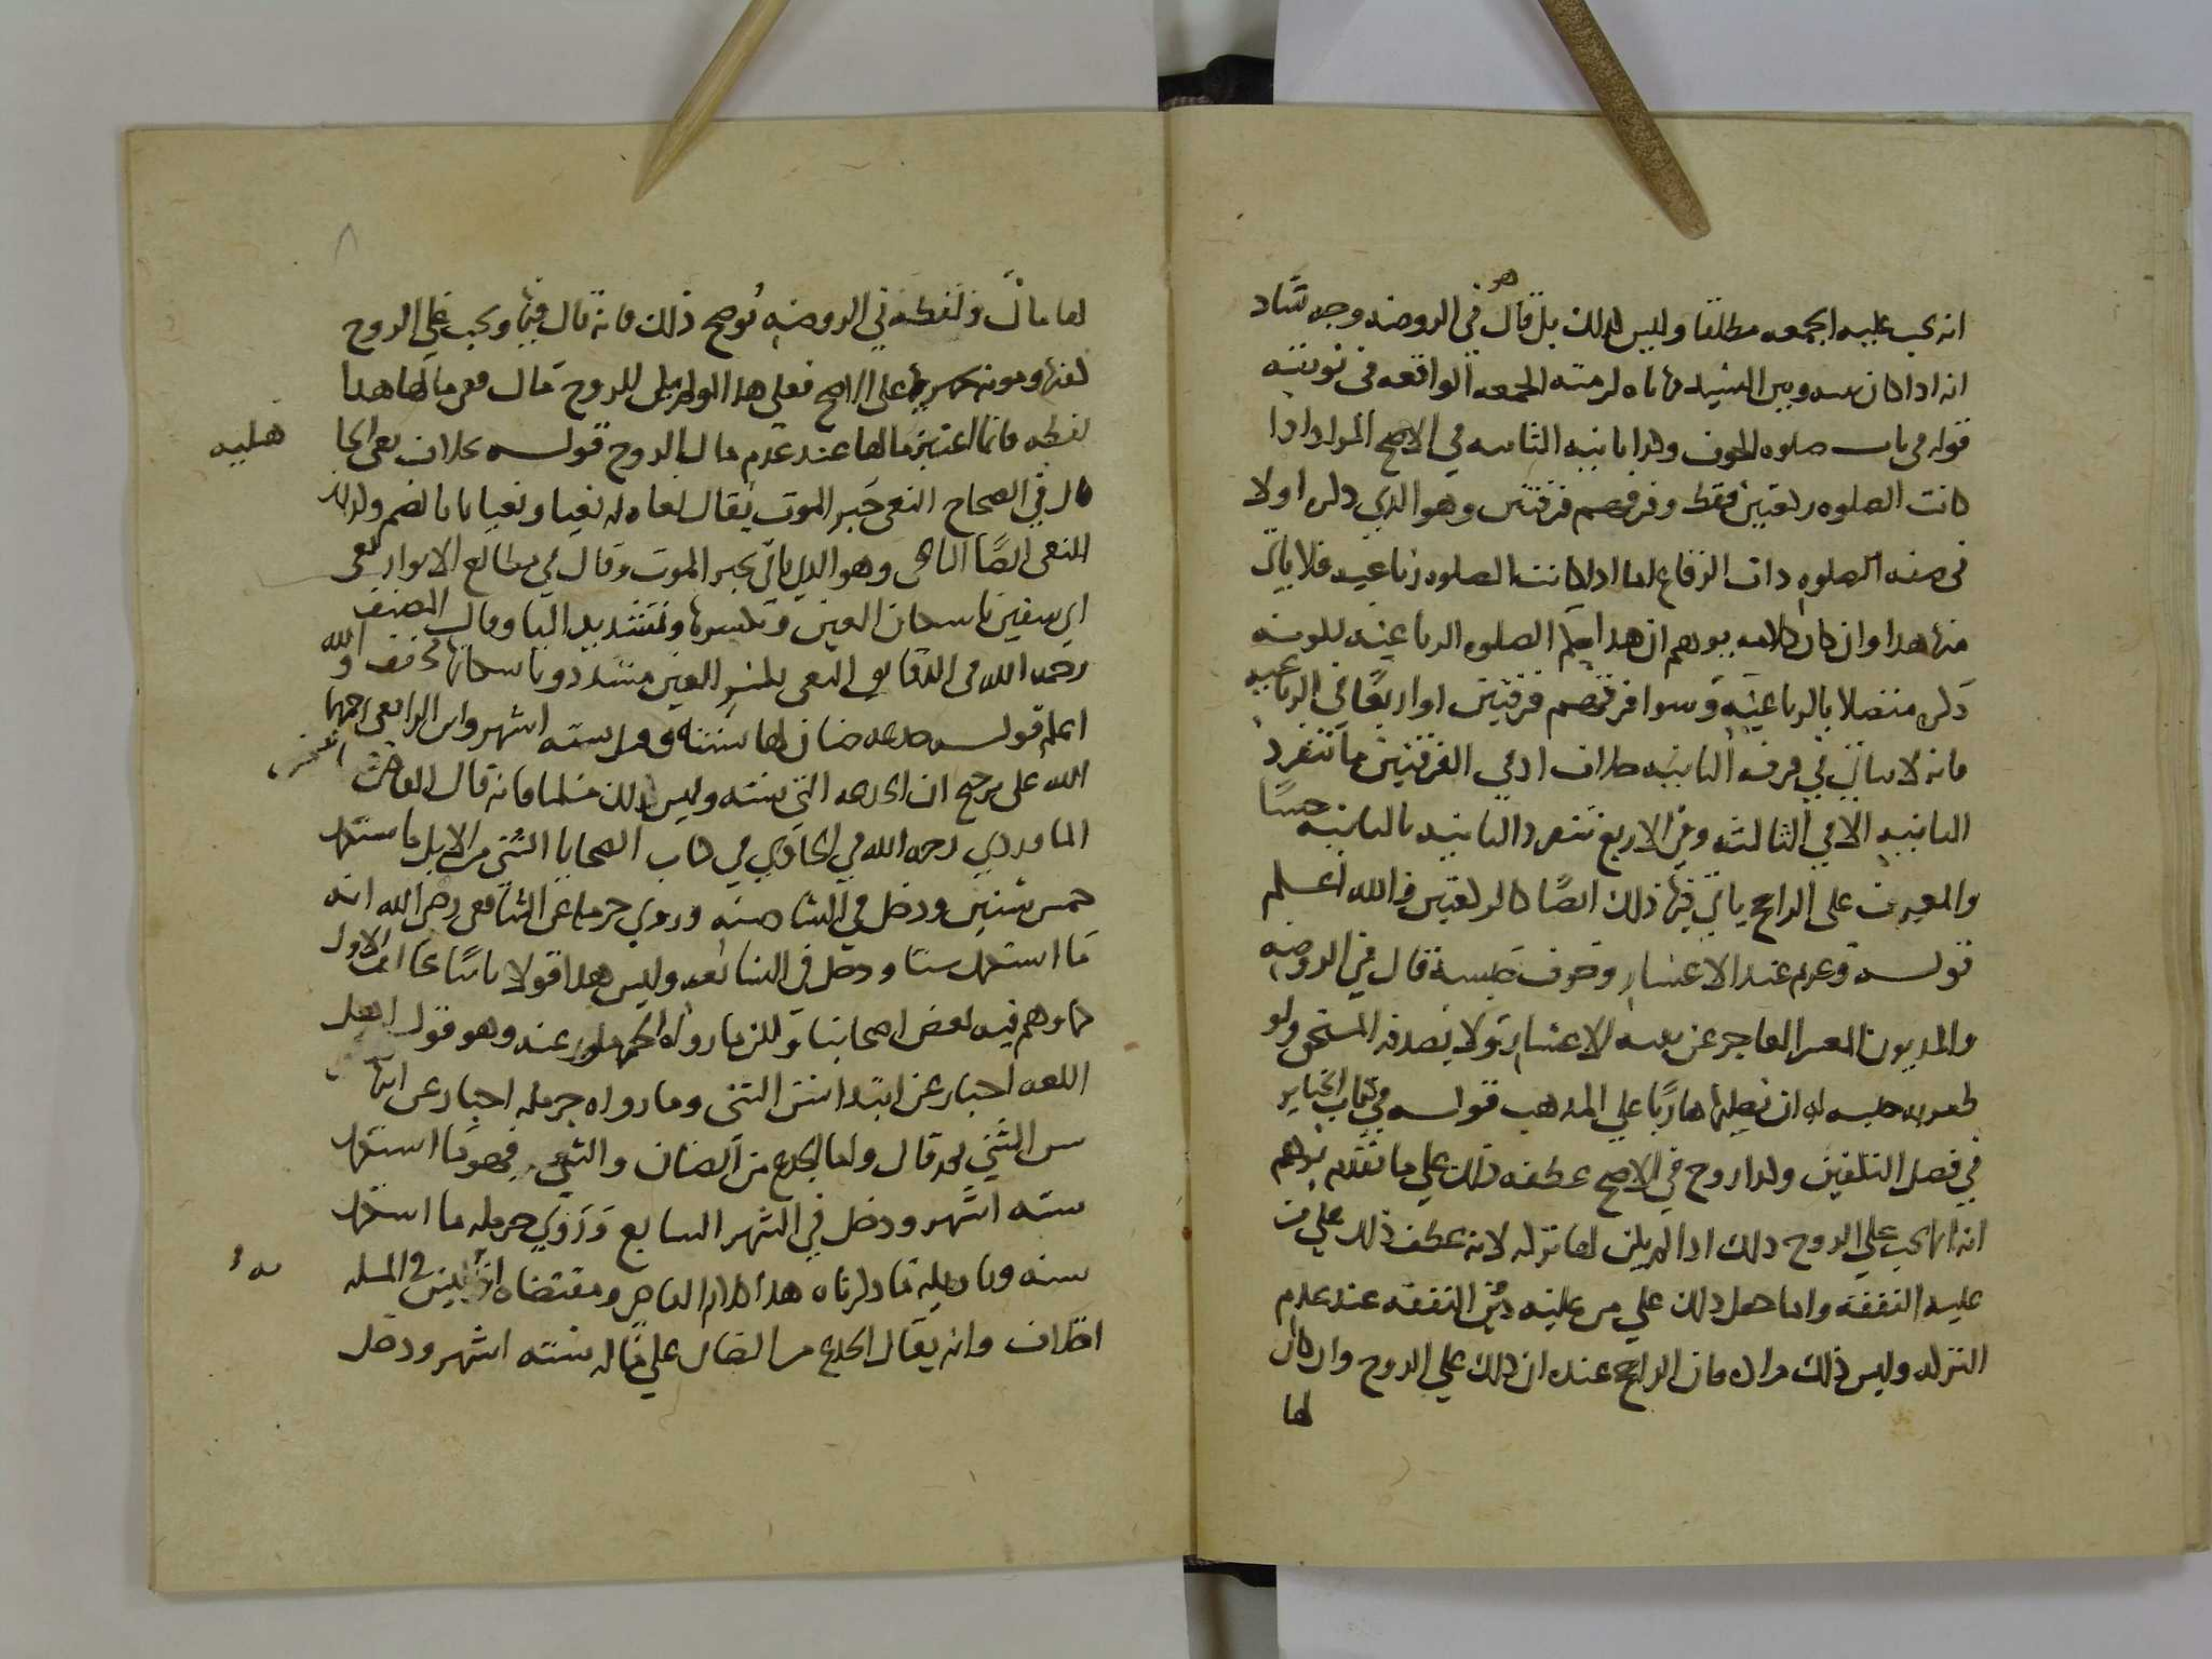 انه يجب عليه الجمعه مطلقا وليس كذلك بل قال هو في الروضه وجه شاد
انه اذا كان بينه وبين السيد مهاياه لزمته الجمعة الواقعه في نوبته
قوله في باب صلوه الخوف وكذا ثانيه الثانيه في الاصح المراد اذا
كانت الصلوه ركعتين فقط وفرقهم فرقتين وهو الذي ذكره اولا
في صفه الصلوه ذات الرقاع اما اذا كانت الصلوه رباعيه فلا ياتي
منها هذا وان كان كلامه يوهم ان هذا يعم الصلوه الرباعيه لكونه
ذكره متصلا بالرباعيه وسوا فرقهم فرقتين او اربعا في الرباعيه
فانه لا ياتي في فرقه الثانيه خلاف اذ في الفرقتين ما تنفرد
الثانيه الا في الثالثه وفي الاربع تنفرد الثانيه بالثانيه حسا
والمغرب على الراجح ياتي فيها ذلك ايضا كالركعتين والله اعلم
قوله وغرم عند الاعسار وخوف حبسه قال في الروضه
والمديون المعسر العاجز عن بينه الاعسار ولا يصدقه المستحق ولو
ظفر به حبسه له ان يصليها هاربا على المذهب قوله في كتاب الجنايز
في فصل التكفين وكذا زوج في الاصح عطفه ذلك على ما تقدم يوهم
انه انما يجب على الزوج ذلك اذا لم يكن لها تركه لانه عطف ذلك على من
عليه النفقه وانما حمل ذلك على من عليه النفقه عند عدم
التركه وليس ذلك مراده فان الراجح عنده ان ذلك على الزوج وان كان
لها
لها مال ولفظه في الروضه يوضح ذلك فانه قال فيها ويجب على الزوج
كفنها ومونه تجهيزها على الاصح فعلى هذا لو لم يكن للزوج مال ففي مالها هذا
لفظه فانما اعتبر مالها عند عدم مال الزوج قوله بخلاف نعي الجا
هليه
قال في الصحاح النعي خبر الموت يقال نعاه له نعيا ونعيانا بالضم وكذلك
النعي ايضا الناعي وهو الذي ياتي بخبر الموت وقال في مطالع الانوار نعي
ابي سفين باسكان العين وبكسرها وتشديد اليا وقال المصنف
رحمه الله في الدقايق النعي بكسر العين مشدد وباسكانها مخفف والله
اعلم قوله جذعه ضان لها سنه وقيل سته اشهر واين الرافعي رحمهما
الله على ترجيح ان الجذعه التي سنته وليس ذلك مسلما فانه قال القاضي
الماوردي رحمه الله في الحاوي في كتاب الضحايا الثني من الابل ما استكمل
خمس سنين ودخل في السادسه وروى حرمله عن الشافعي رضي الله انه
ما استكمل ستا ودخل في السابعه وليس هذا قولا ثانيا الاول
كما وهم فيه بعض اصحابنا ولكن ما رواه الجمهور عنه وهو قول اهل
اللغه اخبار عن ابتدا سن الثني وما رواه حرمله اخبار عن انتها
سن الثني ثم قال واما الجذع من الضان فهو ما استكمل
سته اشهر ودخل في الشهر السابع وروى حرمله ما استكمل
سنه وتاويله ما ذكرناه هذا كلام القاضي ومقتضاه انه ليس في المسله
اختلاف وانه يقال الجذع من الضان على ما له سته اشهر ودخل